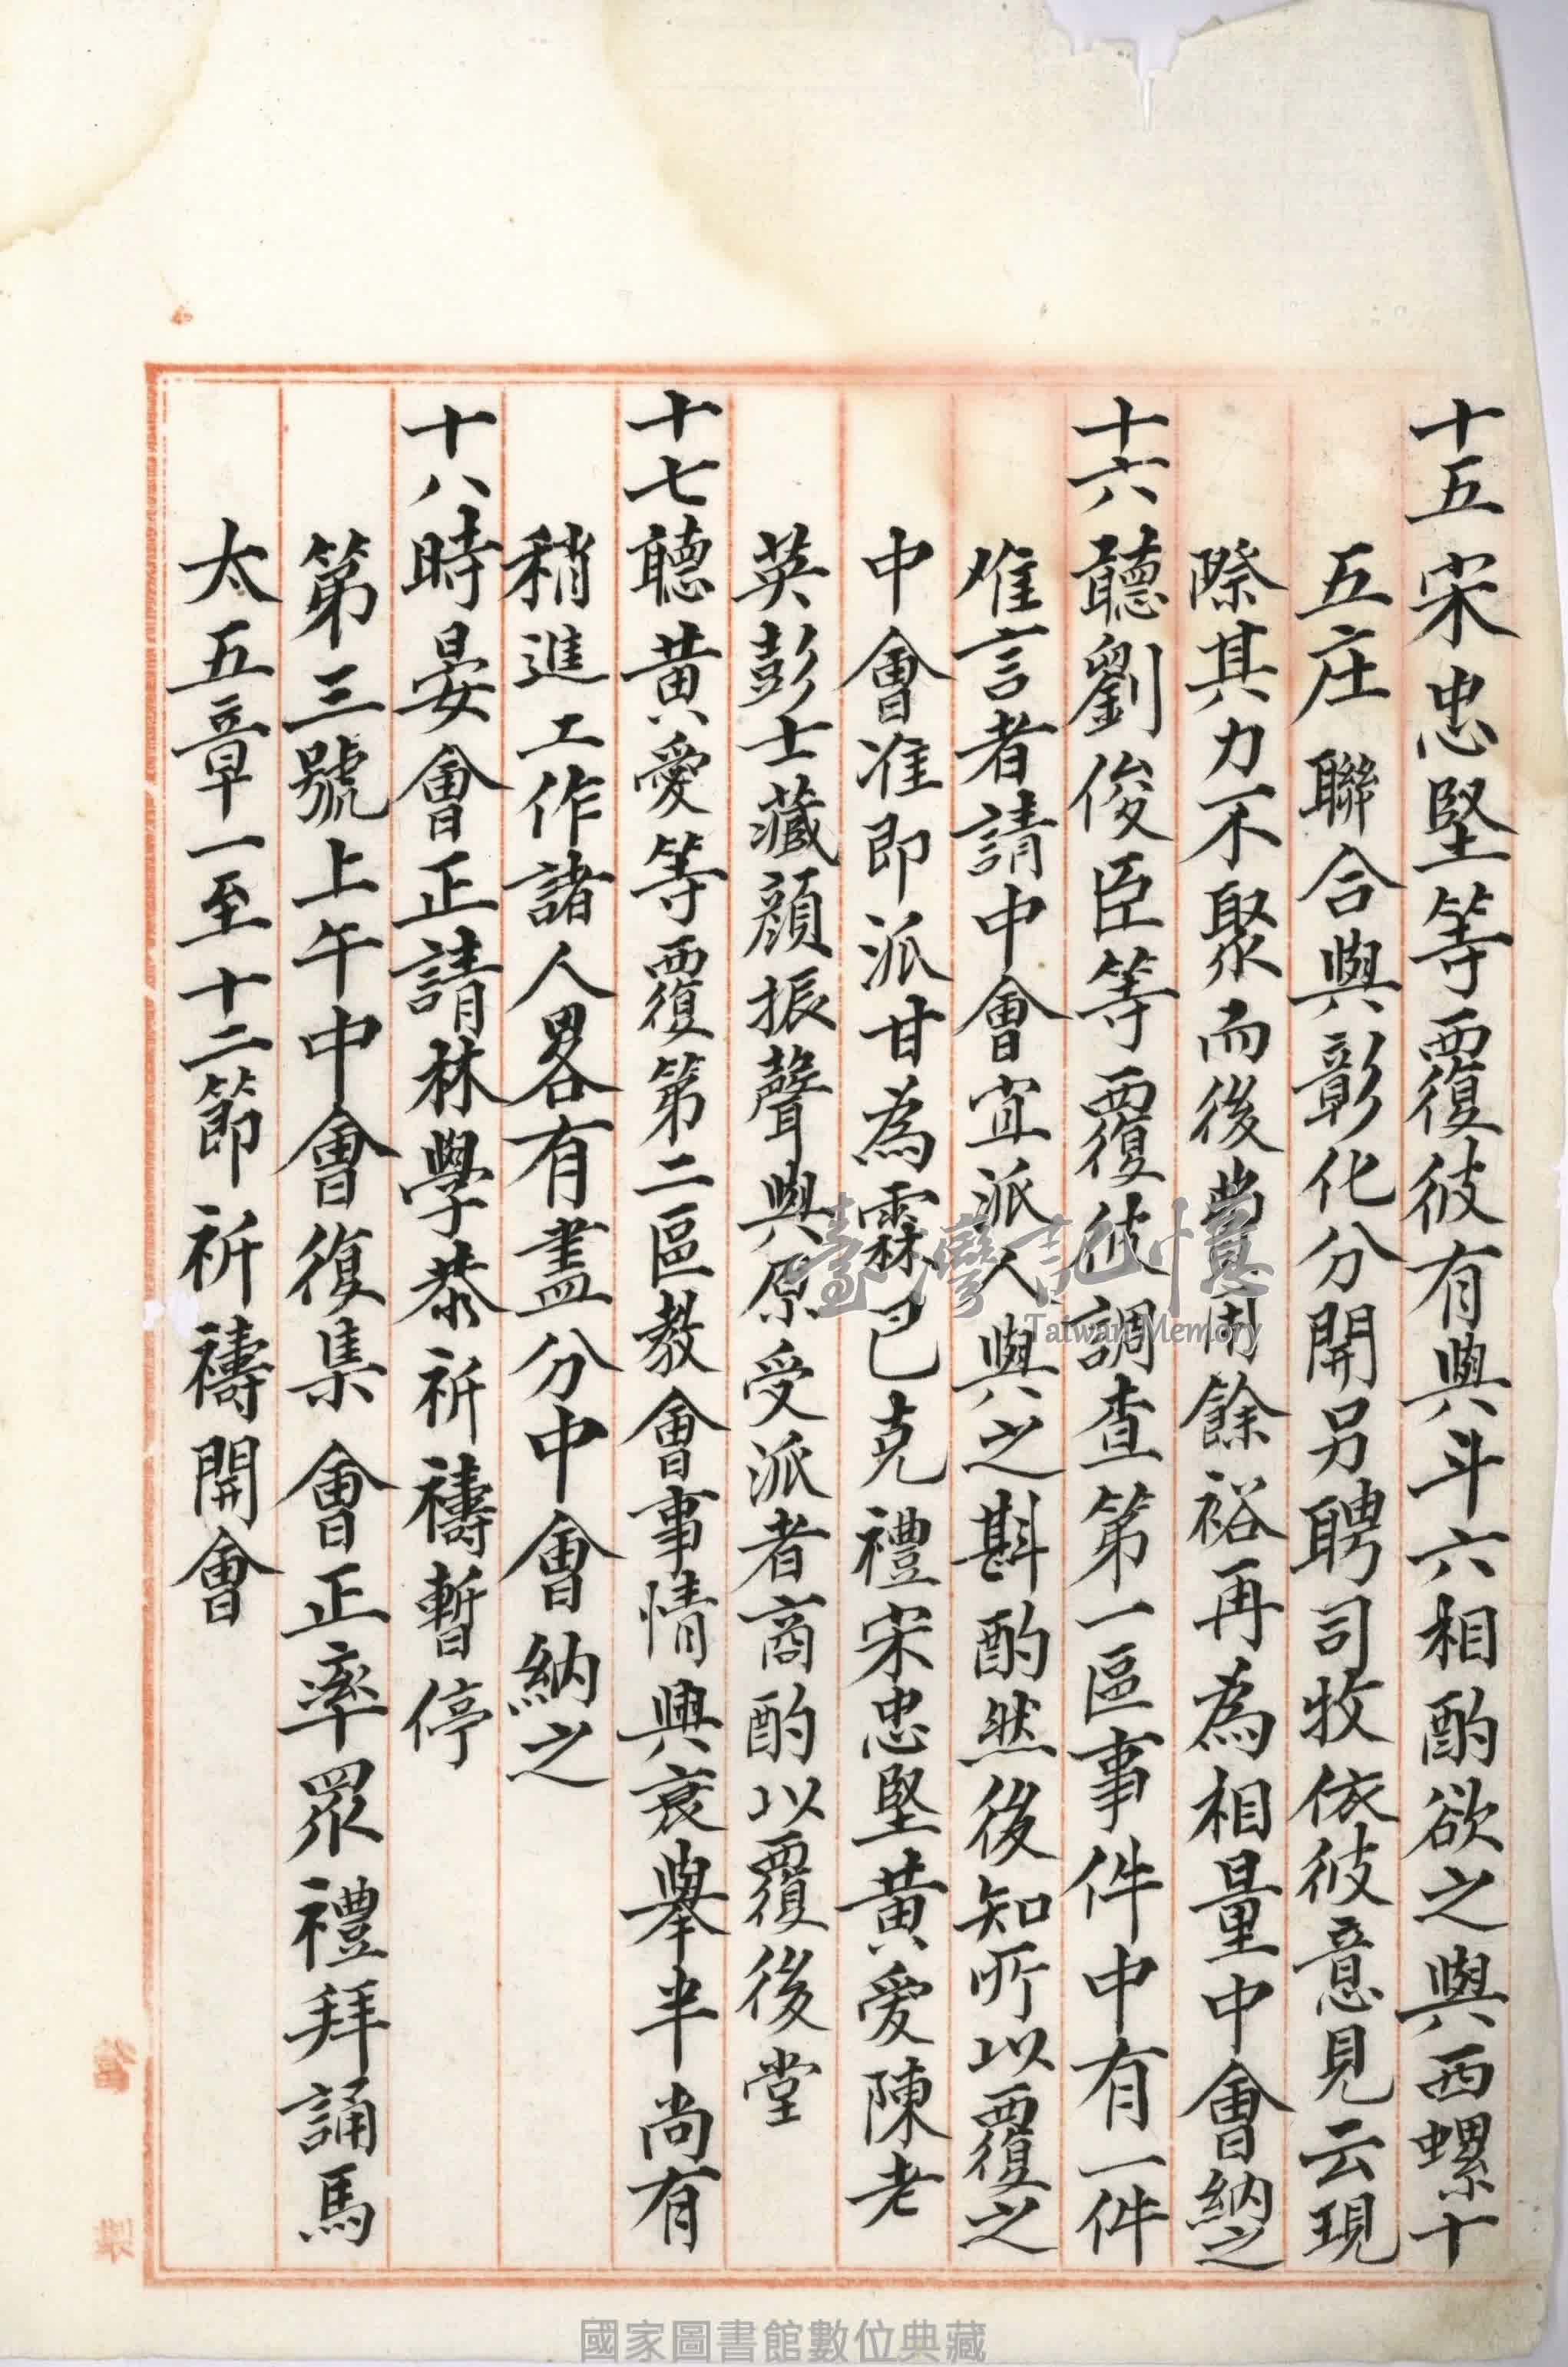 十五宋忠堅等覆彼有與斗六相酌欲之與西螺十
五庄聯合與彰化分開另聘司牧依彼意見云現
際其力不聚而後當意用餘裕再為相量中會納之
十六聽劉俊臣等覆彼調查第一區事件中有一件
难言者請中會宜派人與之斟酌然後知所以覆之
中會准即派甘為霖巴克禮宋忠堅黃愛陳老
英彭士藏顏振聲與原受派者商酌以覆後堂
十七聽黃愛等覆第二區教會事情興衰舉半尚有
稍進工作諸人畧有盡分中會納之
十八時晏會正請林學恭祈禱暫停
第三號上午中會復集會正率眾禮拜誦馬
太五章一至十二節祈禱開會
臺灣記憶
Taiwan Memory
國家圖書館數位典藏